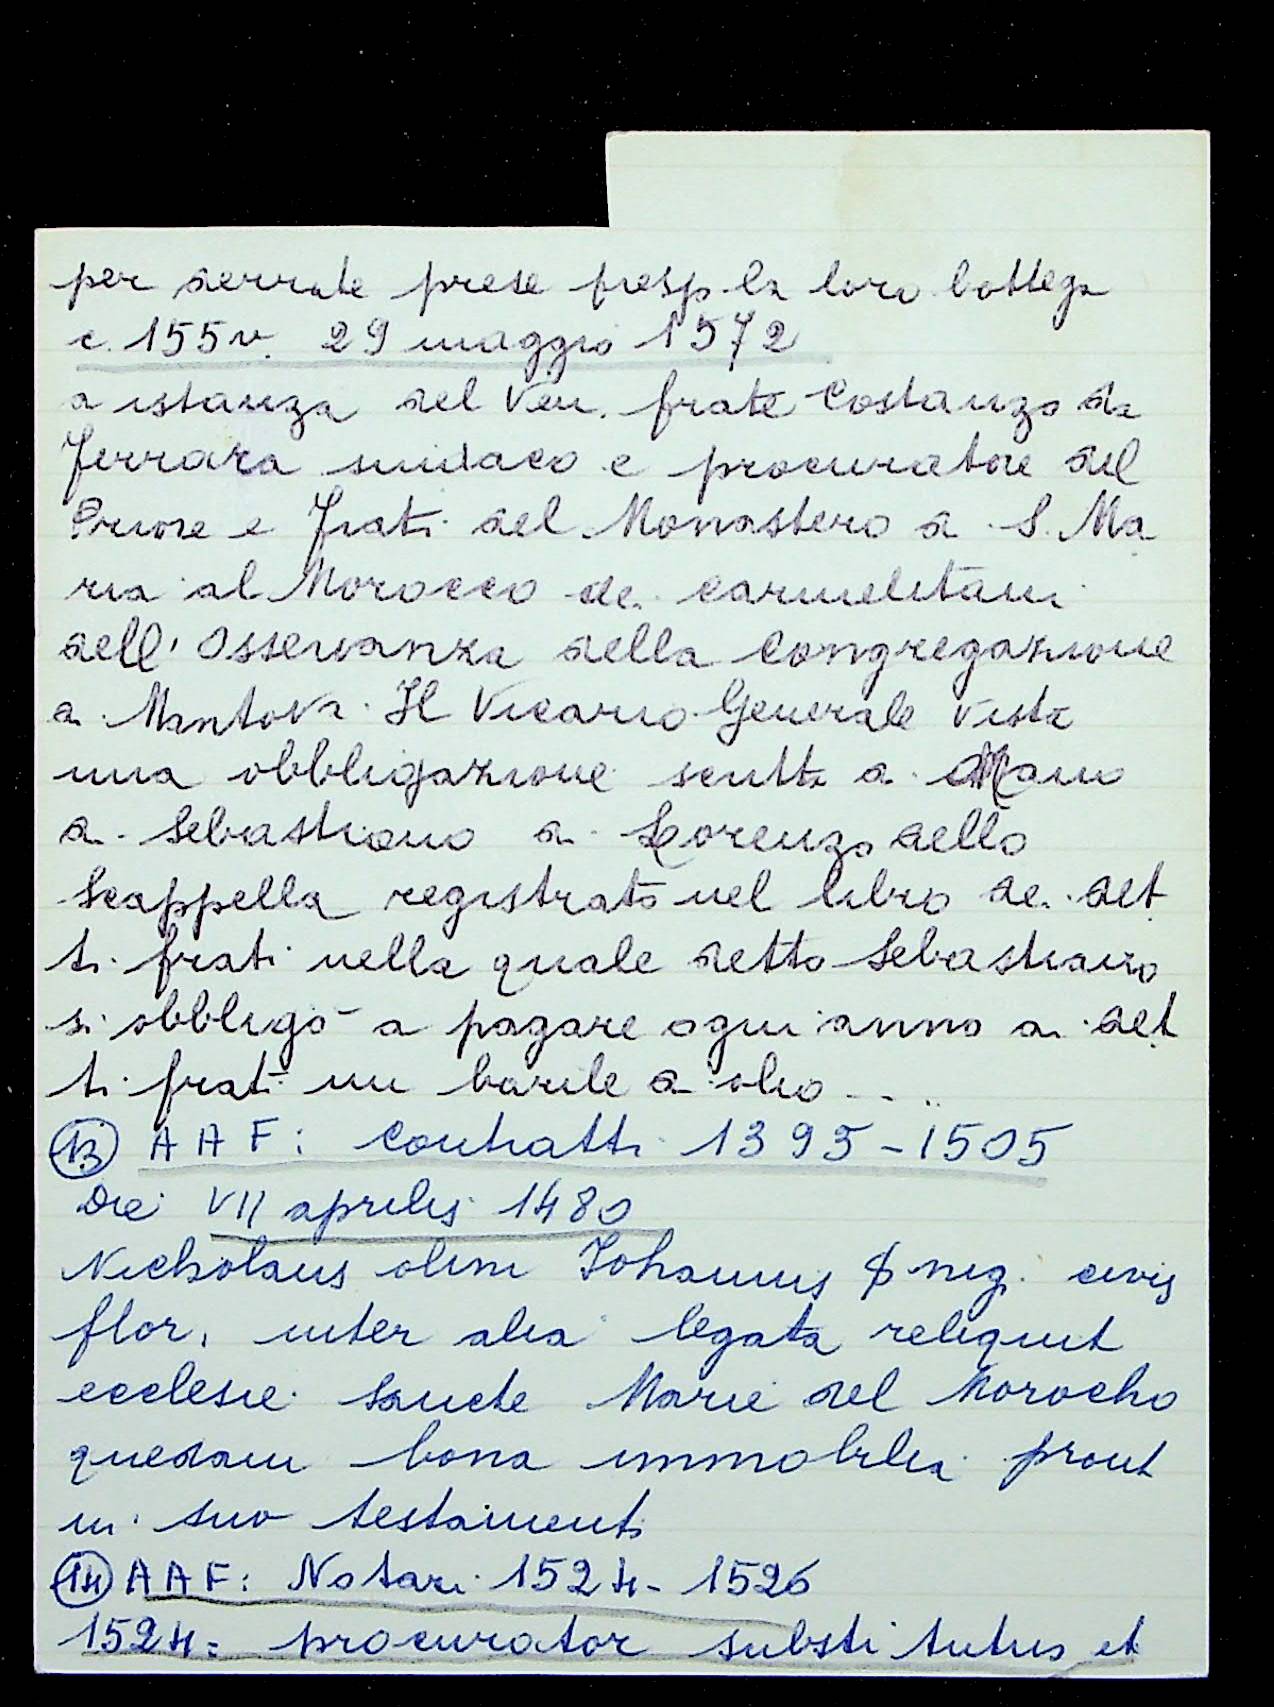 per serrate prese presp. la loro bottega
c. 155v. 29 maggio 1572
a istanza del Ven. frate Costanzo da
Ferrara sindaco e procuratore del
Priore e Frati del Monastero di S. Ma
ria al Morocco de. carmelitani
dell'Osservanza della Congregazione
di Mantova. Il Vicario Generale vista
una obbligazione scritta di Mano
di Sebastiano di Lorenzo dello
Scappella registrato nel libro de. det
ti frati nella quale detto Sebastiano
si obbligò a pagare ogni anno ai det
ti frati un barile di olio ....
13 AAF: Contratti 1395-1505
Die VII aprilis 1480
Nicholaus olim Johannis civis
flor. inter alia legata reliquit
ecclesie Sancte Marie del Morocho
quedam bona immobilia prout
in suo testamenti
14 AAF: Notari 1524-1526
1524: procurator substitutus et